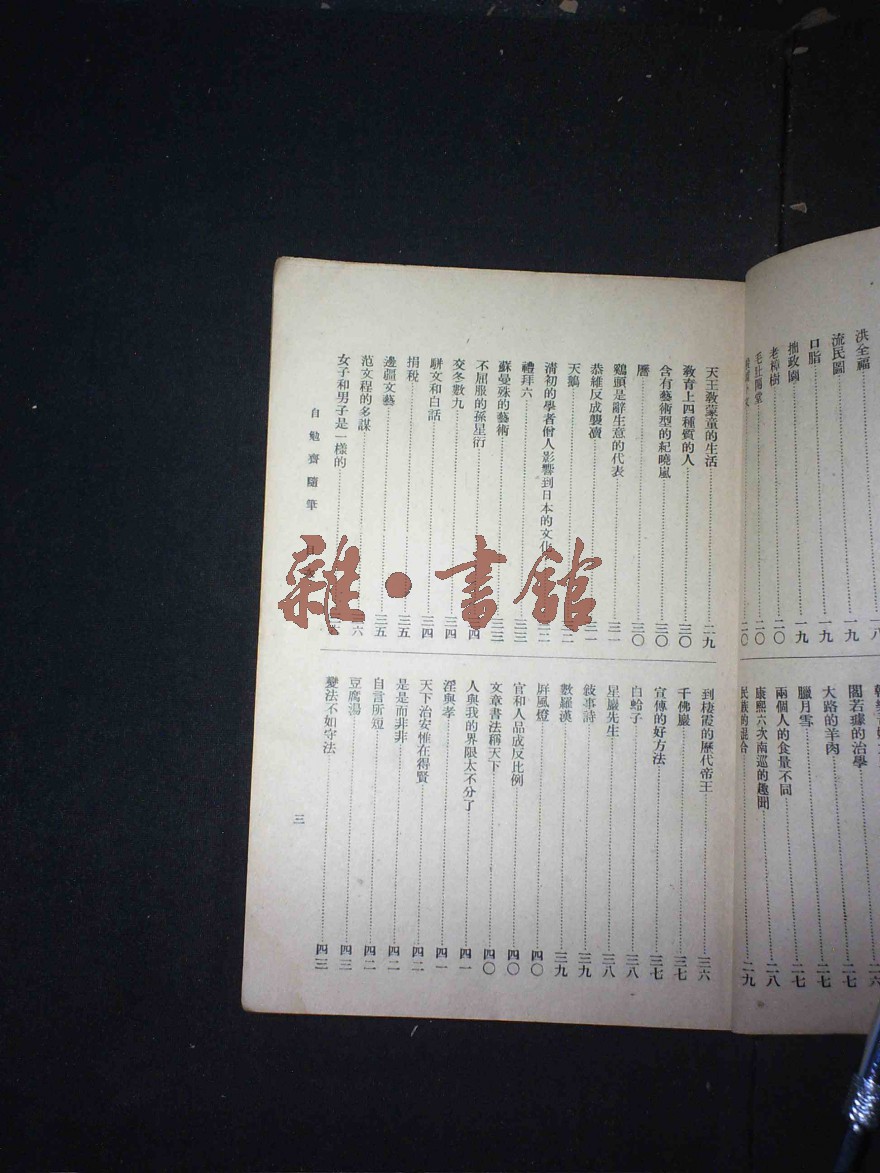 洪全福
流民圖……一八
口脂……一九
拙政園……一九
老樟樹……二〇
毛壯陽堂……二〇
二〇
閻若璩的治學……二六
大路的羊肉……二七
臘月雪……二七
兩個人的食量不同……二八
康熙六次南巡的趣聞
民族的混合……二九
天王敎蒙童的生活……二九
敎育上四種質的人……三〇
含有藝術型的紀曉嵐……三〇
曆……三〇
鷄頭是辭生意的代表……三一
恭維反成褻瀆……三一
天鵝……三二
清初的學者僧人影響到日本的文化……三二
禮拜六……三三
蘇曼殊的藝術……三三
不屈服的孫星衍……三四
交冬數九……三四
駢文和白話……三四
捐稅……三五
邊疆文藝……三五
范文程的多謀……三六
女子和男子是一樣的
到棲霞的歷代帝王……三六
千佛巖……三七
宣傳的好方法……三七
白蛤子……三八
星巖先生……三八
敍事詩……三九
數羅漢……三九
屛風燈……四〇
官和人品成反比例……四〇
文章書法稱天下……四〇
人與我的界限太不分了……四一
淫與孝……四一
天下治安惟在得賢……四二
是是而非非……四二
自言所短……四二
豆腐湯……四三
變法不如守法……四三
自勉齋隨筆 目
三
雜·書館